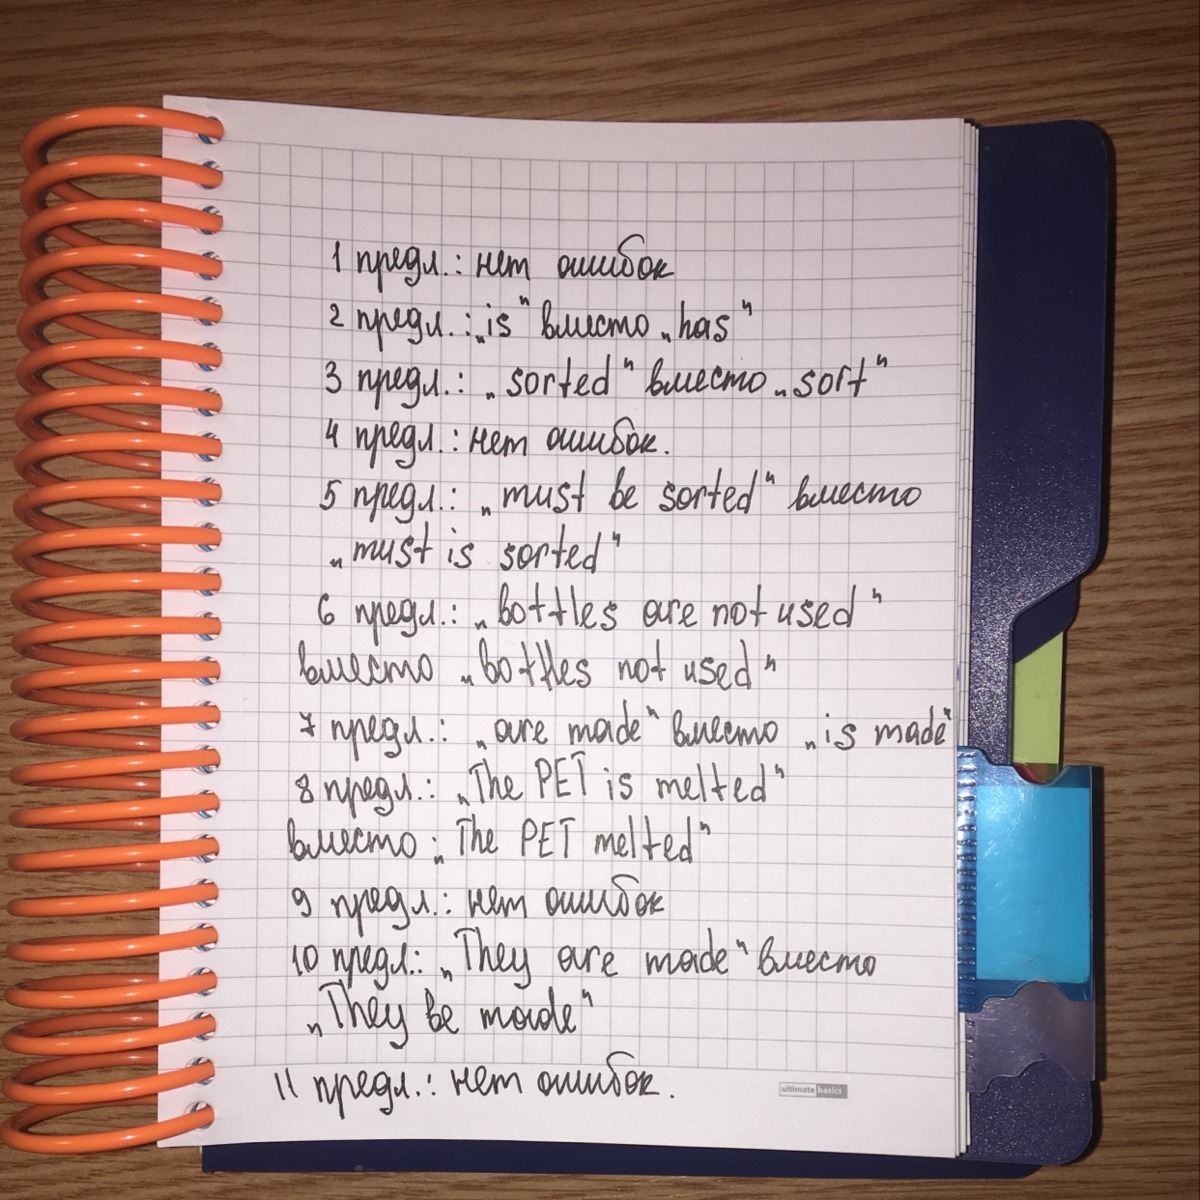 1 предл.: нет ошибок
2 предл.: „is" вместо „has"
3 предл.: „sorted" вместо „sort"
4 предл.: нет ошибок.
5 предл.: „must be sorted" вместо
„must is sorted"
6 предл.: „bottles are not used"
вместо „bottles not used"
7 предл.: „are made" вместо „is made"
8 предл.: „The PET is melted"
вместо: „The PET melted"
9 предл.: нет ошибок
10 предл.: „They are made" вместо
„They be made"
11 предл.: нет ошибок.
ultimate basics